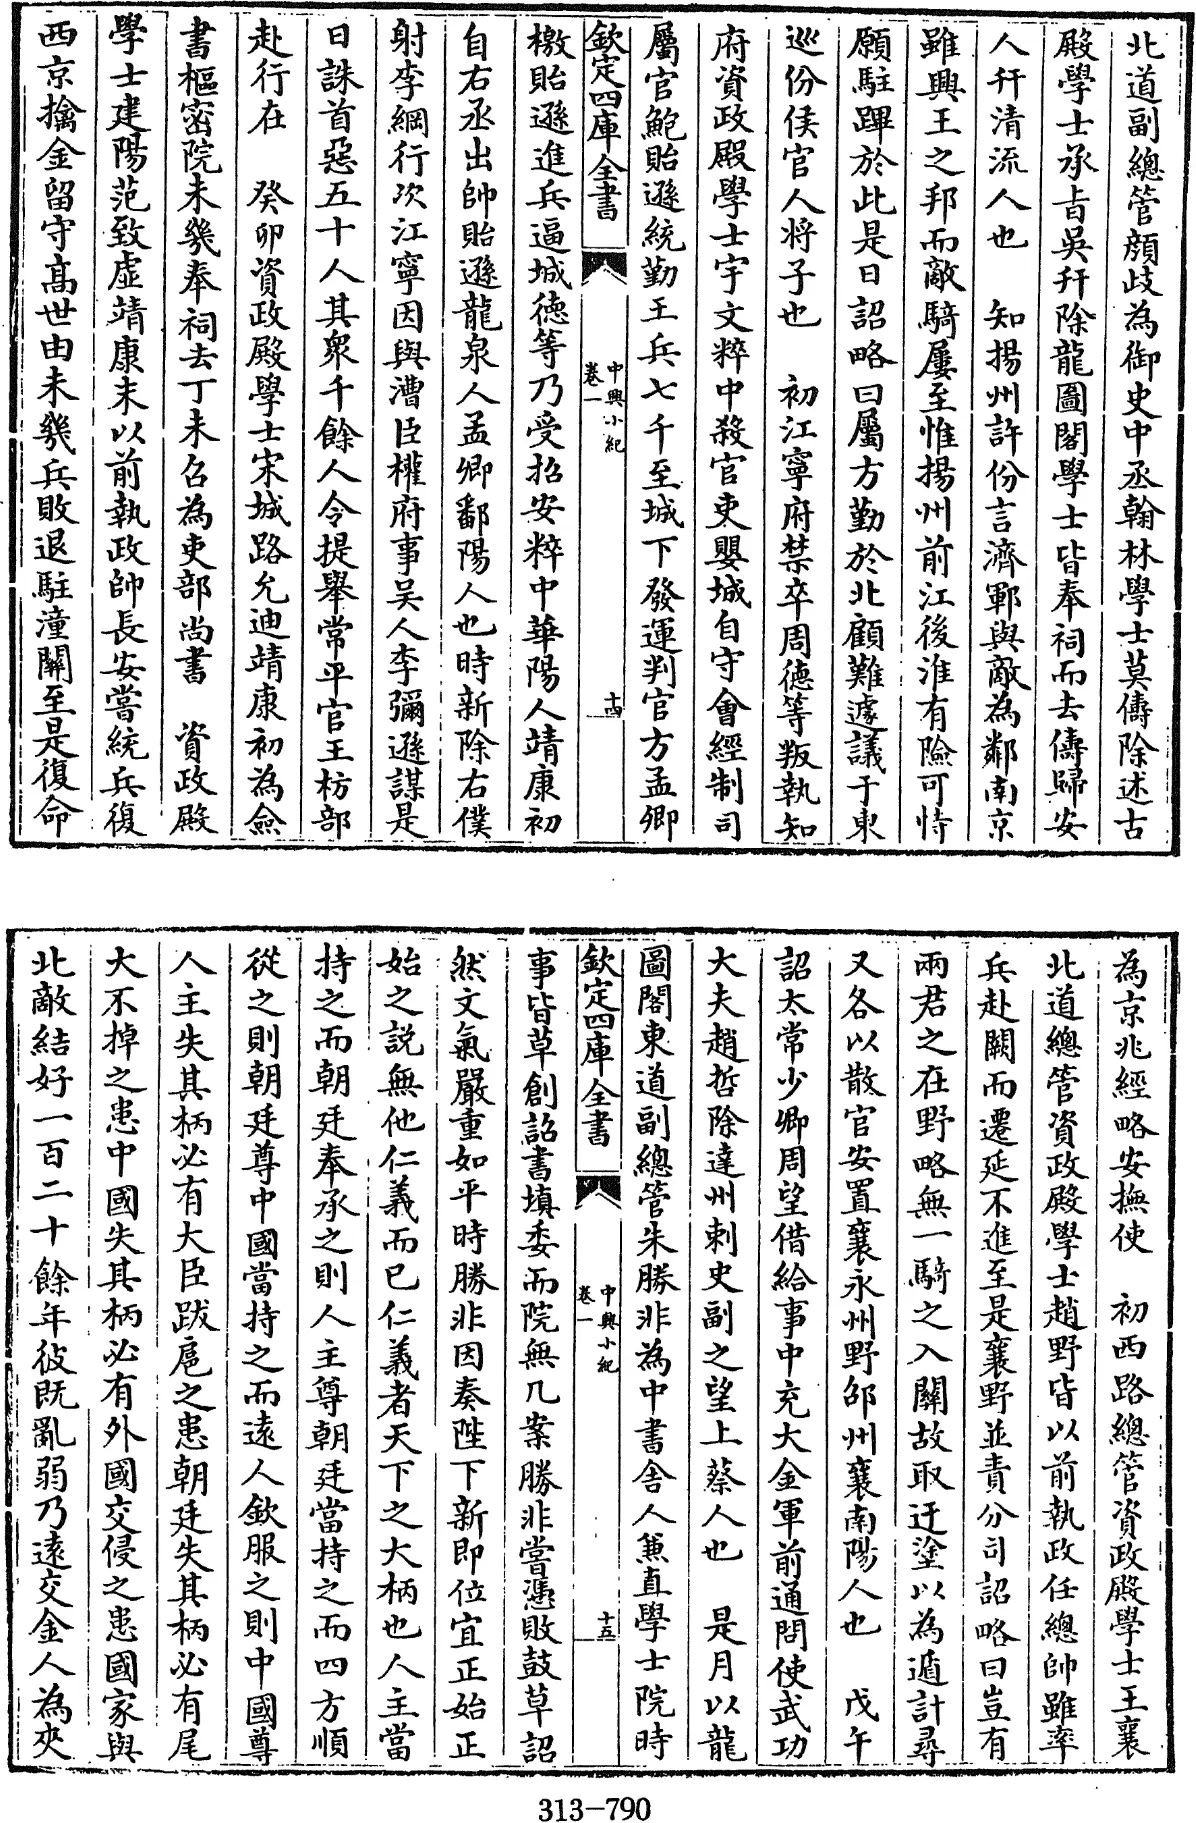 北道副總管顔歧為御史中丞翰林學士莫儔除述古
殿學士承㫖吳幵除龍圖閣學士皆奉祠而去儔歸安
人幵清流人也　知揚州許份言濟鄆與敵為鄰南京
雖興王之邦而敵騎屢至惟揚州前江後淮有險可恃
願駐蹕於此是日詔略曰屬方勤於北顧難遽議于東
巡份侯官人將子也　初江寧府禁卒周德等叛執知
府資政殿學士宇文粹中殺官吏嬰城自守會經制司
屬官鮑貽遜統勤王兵七千至城下發運判官方孟卿
欽定四庫全書　中興小紀　卷一　十四
檄貽遜進兵逼城德等乃受招安粹中華陽人靖康初
自右丞出帥貽遜龍泉人孟卿鄱陽人也時新除右僕
射李綱行次江寧因與漕臣權府事吳人李彌遜謀是
日誅首惡五十人其衆千餘人令提舉常平官王枋部
赴行在　癸卯資政殿學士宋城路允迪靖康初為僉
書樞密院未幾奉祠去丁未召為吏部尚書　資政殿
學士建陽范致虛靖康末以前執政帥長安嘗統兵復
西京擒金留守高世由未幾兵敗退駐潼關至是復命
為京兆經略安撫使　初西路總管資政殿學士王襄
北道總管資政殿學士趙野皆以前執政任總帥雖率
兵赴闕而遷延不進至是襄野並責分司詔略曰豈有
兩君之在野略無一騎之入關故取迂塗以為遁計尋
又各以散官安置襄永州野邵州襄南陽人也　戊午
詔太常少卿周望借給事中充大金軍前通問使武功
大夫趙哲除達州刺史副之望上蔡人也　是月以龍
圖閣東道副總管朱勝非為中書舍人兼直學士院時
欽定四庫全書　中興小紀　卷一　十五
事皆草創詔書填委而院無几案勝非嘗憑敗鼓草詔
然文氣嚴重如平時勝非因奏陛下新即位宜正始正
始之說無他仁義而已仁義者天下之大柄也人主當
持之而朝廷奉承之則人主尊朝廷當持之而四方順
從之則朝廷尊中國當持之而遠人欽服之則中國尊
人主失其柄必有大臣跋扈之患朝廷失其柄必有尾
大不掉之患中國失其柄必有外國交侵之患國家與
北敵結好一百二十餘年彼既亂弱乃遠交金人為夾
313-790